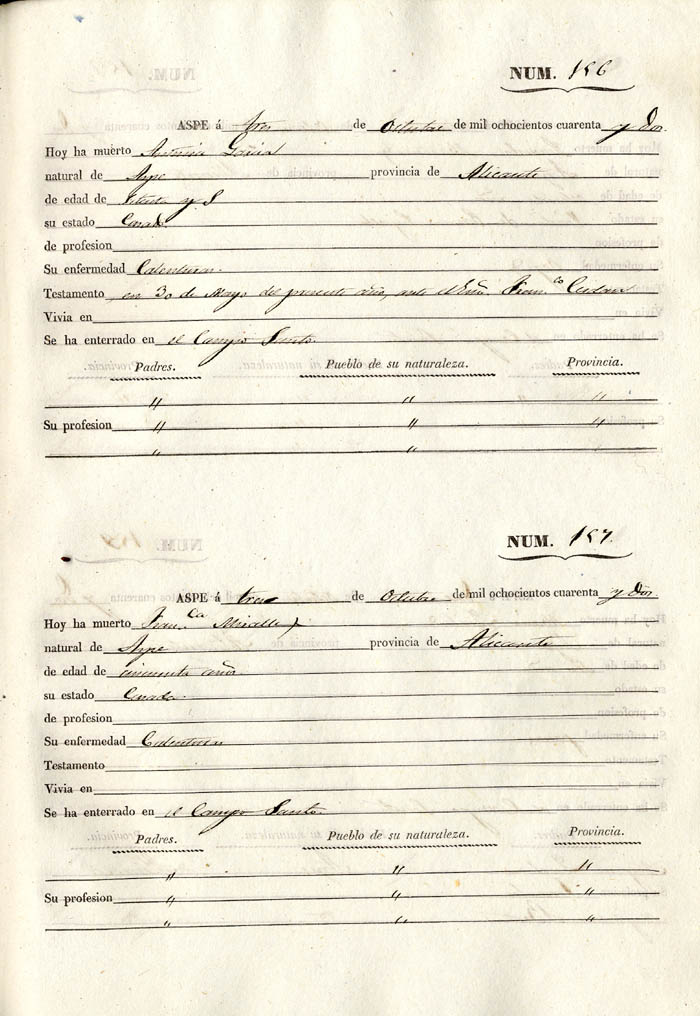 NUM. 156
ASPE á tres de Octubre de mil ochocientos cuarenta y Dos.
Hoy ha muerto Antonia García
natural de Aspe provincia de Alicante
de edad de
su estado Casada
de profesion
Su enfermedad Calenturas.
Testamento en 30 de Mayo del presente año, ante el Fran.co
Vivia en
Se ha enterrado en el Campo Santo.
Padres. Pueblo de su naturaleza. Provincia.
" " "
Su profesion " " "
" "
NUM. 157.
ASPE á tres de Octubre de mil ochocientos cuarenta y Dos.
Hoy ha muerto Fran.ca Miralles
natural de Aspe provincia de Alicante
de edad de cincuenta años.
su estado Casada.
de profesion
Su enfermedad Calenturas
Testamento
Vivia en
Se ha enterrado en el Campo Santo.
Padres. Pueblo de su naturaleza. Provincia.
" " "
Su profesion " " "
" " "